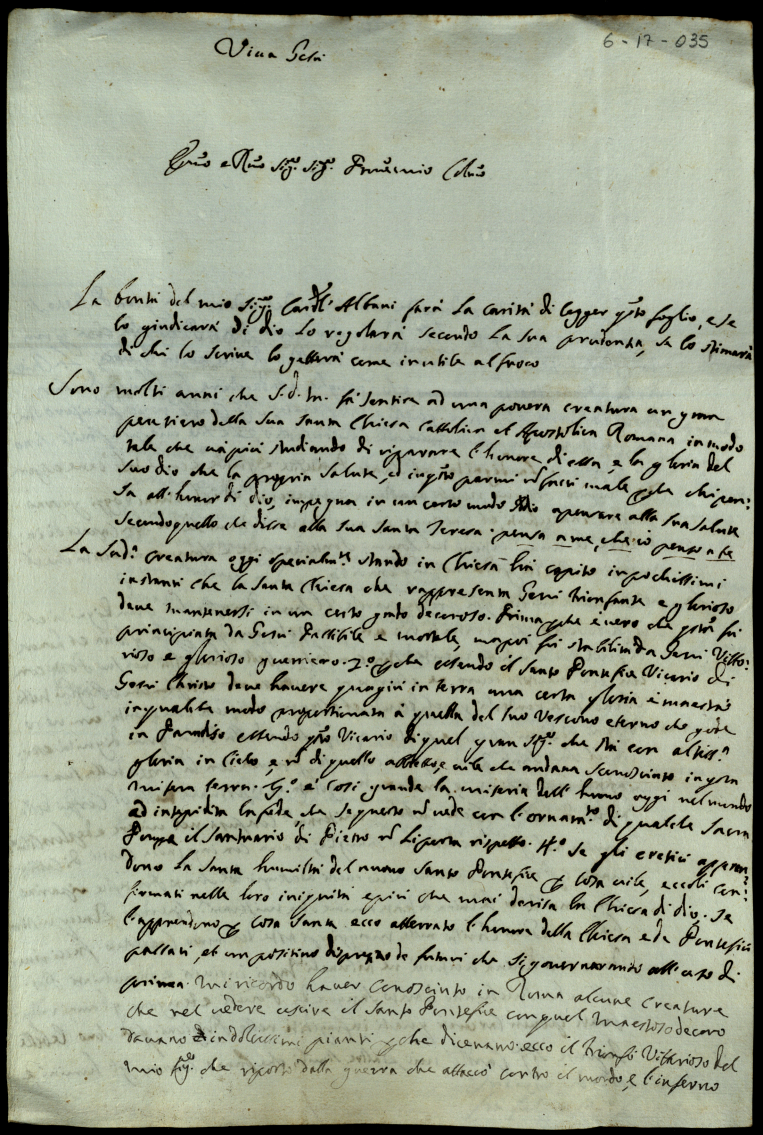 6-17-035
Viva Gesù
Em̃o e Rm̃o Sig.re Sig.re Colm̃o
La bontà del mio Sig.re Card.l Albani farà la carità di legger q̃sto foglio, e se
lo giudicarà di dio lo regolarà secondo la sua prudenza, se lo stimarà
di chi lo scrive lo getterà come inutile al fuoco
Sono molti anni che S.d.M. fà sentire ad una povera creatura un gran
pensiero della sua Santa Chiesa Cattolica et Apostolica Romana in modo
tale che và più studiando di riparare l'honore di essa, e la gloria del
suo dio che la propria salute, ed in q̃sto parmi nõ facci male p̃che chi pen:
sa all'honor di dio, impegna in un certo modo Iddio a pensare alla sua salute
secondo quello che disse alla sua Santa Teresa: pensa a me, che io penso a te
La Sud.a creatura oggi specialm.te stando in Chiesa hà capito in pochissimi
instanti che la Santa Chiesa che rappresenta Gesù trionfante e glorioso
deve mantenersi in un certo grado decoroso. Prima p̃che è vero che q̃sta fù
principiata da Gesù Passibile e mortale, mà poi fù stabilita da Gesù Vitto:
rioso e glorioso guerriero. 2.o p̃che essendo il Santo Pontefice Vicario di
Gesù Christo deve havere quaggiù in terra una certa gloria e maestà
in qualche modo proportionata à quella del suo Vescovo eterno che gode
in Paradiso essendo q̃sto Vicario di quel gran Sig.re che stà con altiss.a
gloria in Cielo, e nõ di quello abietto e vile che andava sconosciuto in q̃sta
misera terra. 3.o è così grande la miseria dell'huomo oggi nel mondo
ed intepidita la fede che se questo nõ vede con l'ornam.to di qualche sacra
Pompa il Santuario di Pietro nõ li porta rispetto. 4.o Se gli eretici appren:
dono la Santa humiltà del nuovo Santo Pontefice p̃ cosa vile, eccoli con:
firmati nelle loro iniquità e più che mai derisa la Chiesa di dio. Se
l'apprendono p̃ cosa Santa ecco atterrato l'honore della Chiesa e de Pontefici
passati, et un positivo disprezzo de futuri che si governaranno all'uso di
prima. Mi ricordo haver conosciuto in Roma alcune creature
che nel vedere uscire il Santo Pontefice con quel maestoso decoro
davano in dolcissimi pianti p̃che dicevano: ecco il trionfo Vittorioso del
mio Sig.re che riportò dalla guerra che attaccò contro il mondo, e l'inferno